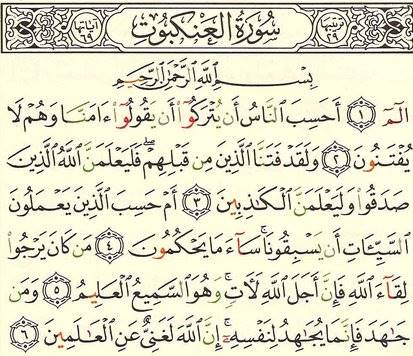 ترتيبها ٢٩ سورة العنكبوت آياتها ٦٩
بِسْمِ ٱللَّهِ ٱلرَّحْمَٰنِ ٱلرَّحِيمِ
الٓمٓ ١ أَحَسِبَ ٱلنَّاسُ أَن يُتْرَكُوٓا۟ أَن يَقُولُوٓا۟ ءَامَنَّا وَهُمْ لَا
يُفْتَنُونَ ٢ وَلَقَدْ فَتَنَّا ٱلَّذِينَ مِن قَبْلِهِمْ ۖ فَلَيَعْلَمَنَّ ٱللَّهُ ٱلَّذِينَ
صَدَقُوا۟ وَلَيَعْلَمَنَّ ٱلْكَٰذِبِينَ ٣ أَمْ حَسِبَ ٱلَّذِينَ يَعْمَلُونَ
ٱلسَّيِّـَٔاتِ أَن يَسْبِقُونَا ۚ سَآءَ مَا يَحْكُمُونَ ٤ مَن كَانَ يَرْجُوا۟
لِقَآءَ ٱللَّهِ فَإِنَّ أَجَلَ ٱللَّهِ لَءَاتٍ ۚ وَهُوَ ٱلسَّمِيعُ ٱلْعَلِيمُ ٥ وَمَن
جَٰهَدَ فَإِنَّمَا يُجَٰهِدُ لِنَفْسِهِۦٓ ۚ إِنَّ ٱللَّهَ لَغَنِىٌّ عَنِ ٱلْعَٰلَمِينَ ٦